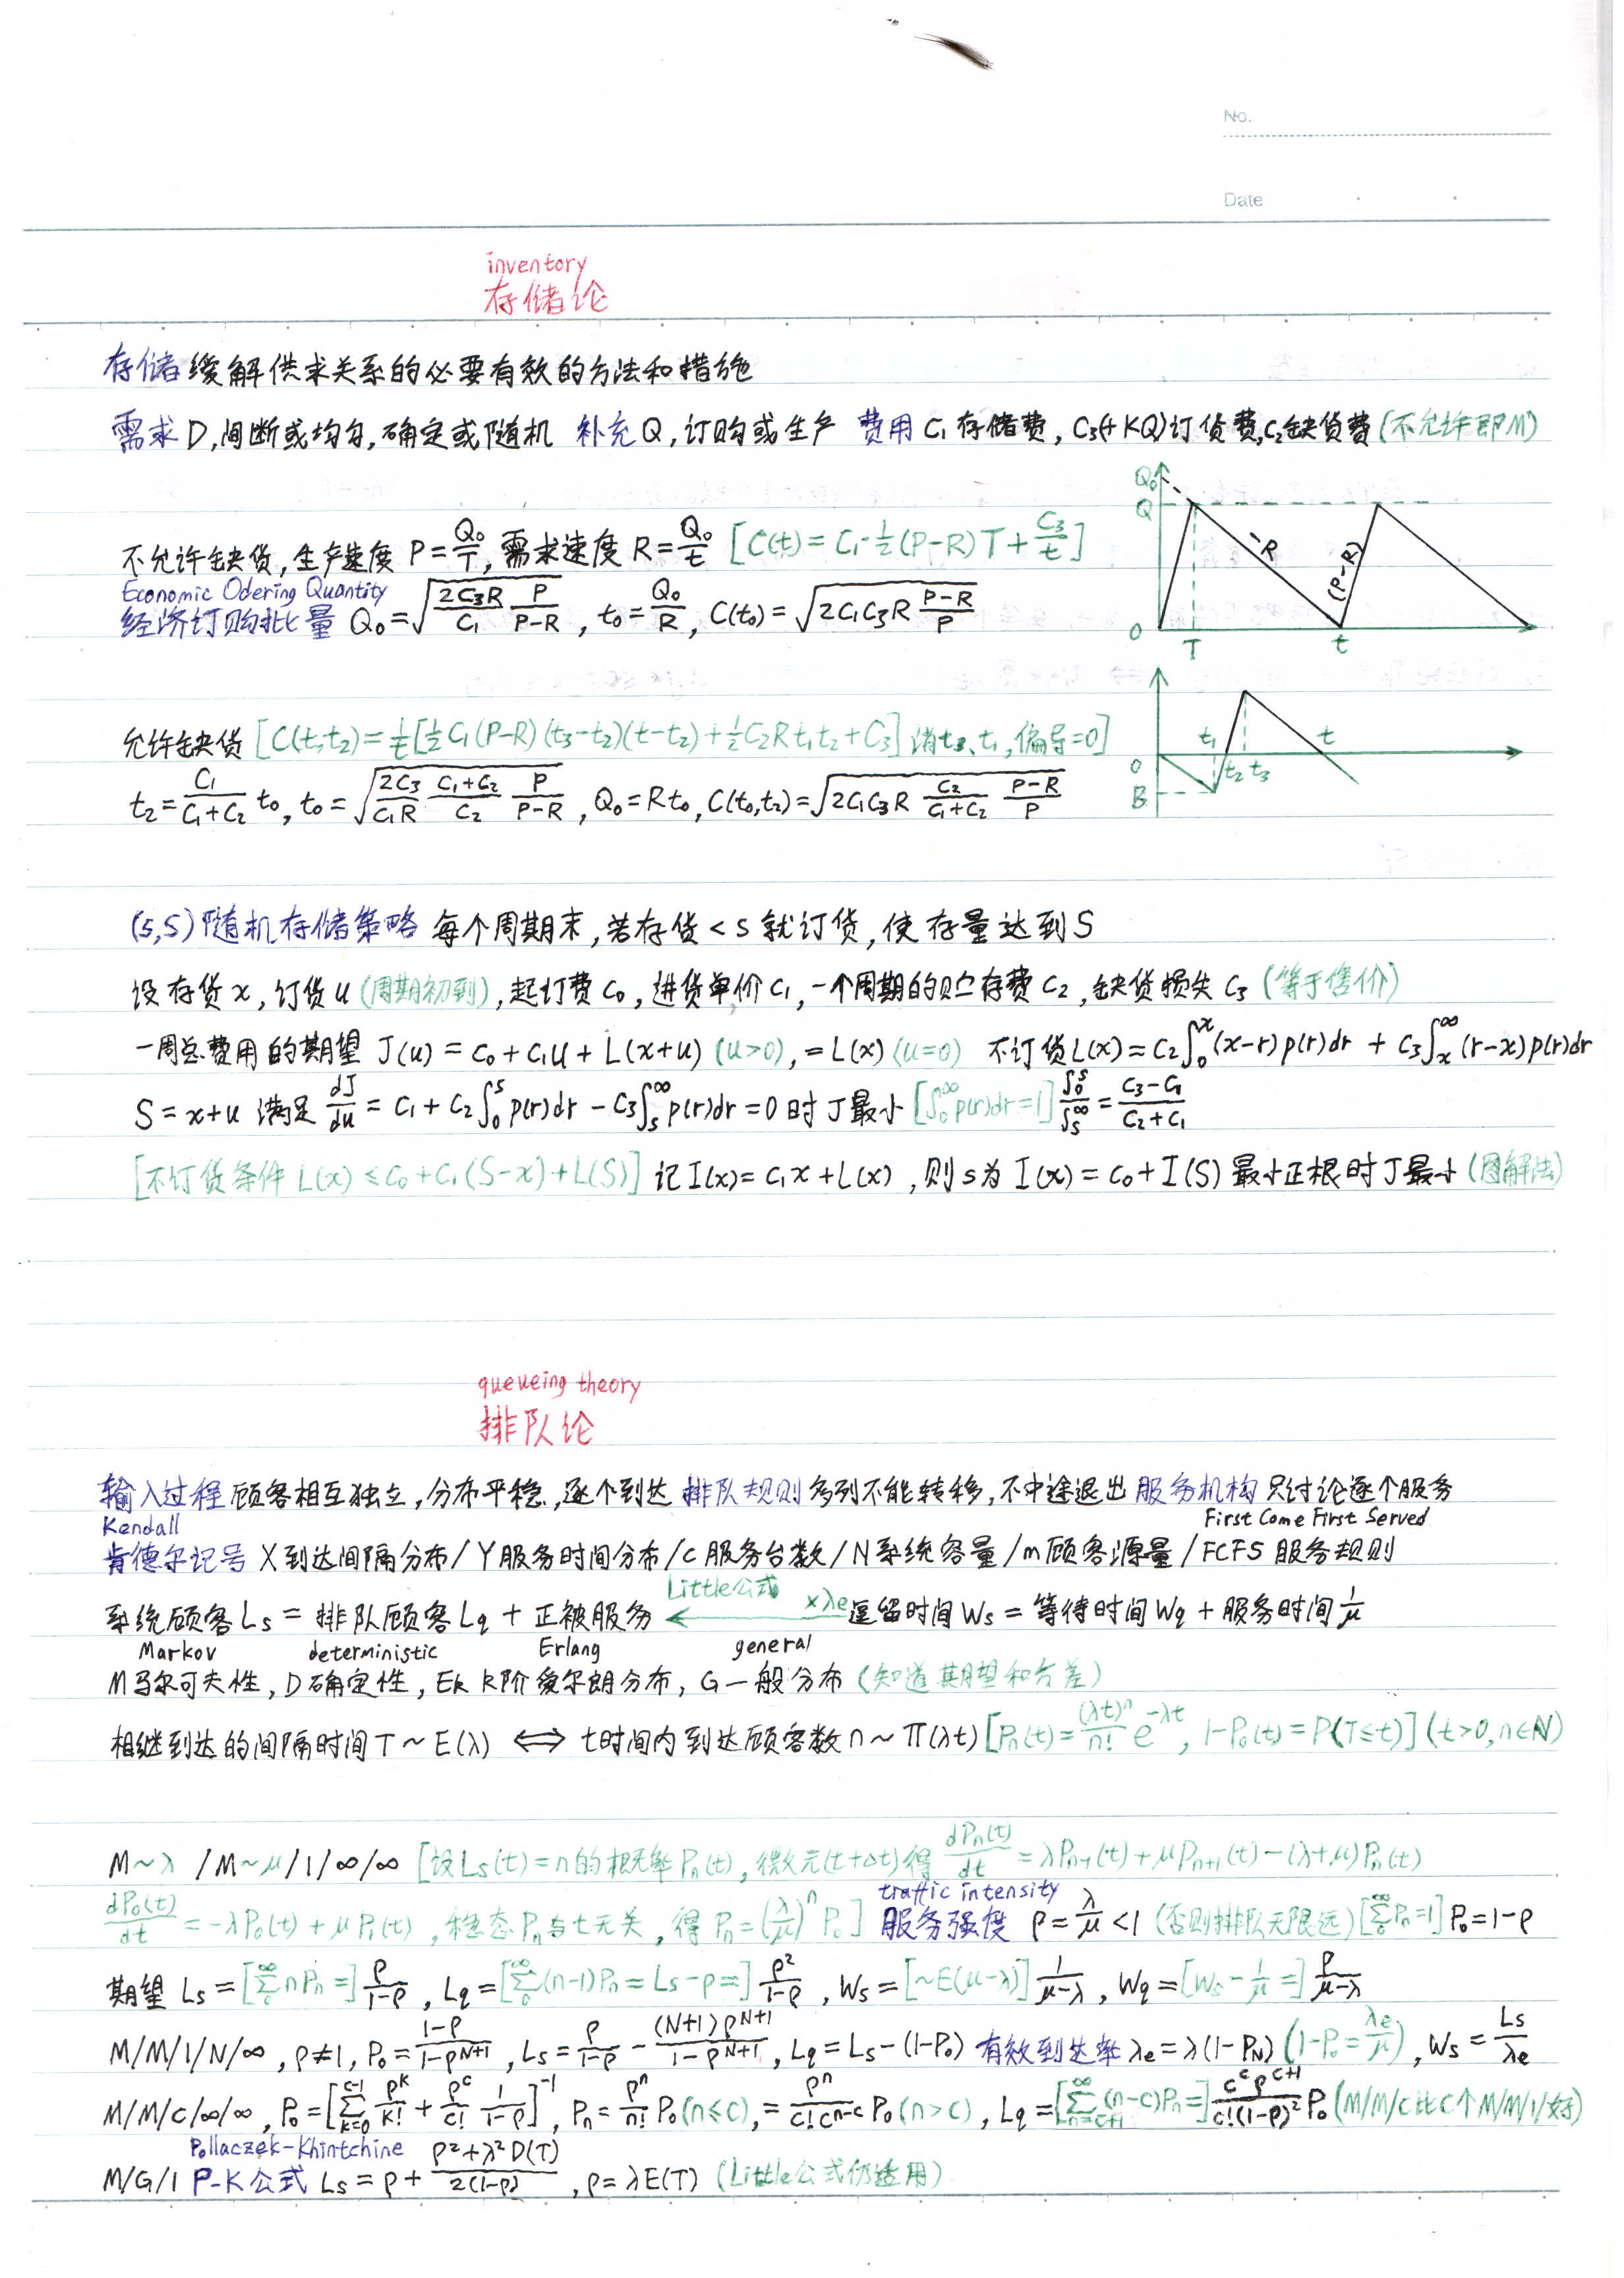 No.
Date
inventory
存储论
存储 缓解供求关系的必要有效的方法和措施
需求 D,间断或均匀,确定或随机 补充 Q,订购或生产 费用 C₁存储费, C₃(+KQ)订货费,C₂缺货费(不允许即M)
不允许缺货, 生产速度 P=Q₀/T, 需求速度 R=Q₀/t [C(t)=C₁·½(P-R)T+C₃/t]
Economic Odering Quantity
经济订购批量 Q₀=√(2C₃R/C₁ P/(P-R)), t₀=Q₀/R, C(t₀)=√(2C₁C₃R (P-R)/P)
Q₀
Q
-R
(P-R)
O
T
t
允许缺货 [C(t,t₂)=1/t[½C₁(P-R)(t₃-t₂)(t-t₂)+½C₂Rt₁t₂+C₃] 消t₃、t₁,偏导=0]
t₂=C₁/(C₁+C₂) t₀, t₀=√(2C₃/C₁R (C₁+C₂)/C₂ P/(P-R)), Q₀=Rt₀, C(t₀,t₂)=√(2C₁C₃R C₂/(C₁+C₂) (P-R)/P)
t₁
t
O
t₂ t₃
B
(s,S)随机存储策略 每个周期末,若存货<s就订货,使存量达到S
设存货x,订货u(周期初到),起订费c₀,进货单价c₁,一个周期的贮存费c₂,缺货损失c₃(等于售价)
一周总费用的期望 J(u)=c₀+c₁u+L(x+u) (u>0),=L(x) (u=0) 不订货L(x)=c₂∫₀ˣ(x-r)p(r)dr+c₃∫ₓ^∞(r-x)p(r)dr
S=x+u 满足 dJ/du=c₁+c₂∫₀ˢp(r)dr-c₃∫ₛ^∞p(r)dr=0时J最小 [∫₀^∞p(r)dr=1] ∫₀ˢ/∫ₛ^∞=(c₃-c₁)/(c₂+c₁)
[不订货条件 L(x)≤c₀+c₁(S-x)+L(S)] 记I(x)=c₁x+L(x),则s为I(x)=c₀+I(S)最小正根时J最小(图解法)
queueing theory
排队论
输入过程 顾客相互独立,分布平稳,逐个到达 排队规则 多列不能转移,不中途退出 服务机构 只讨论逐个服务
Kendall First Come First Served
肯德尔记号 X到达间隔分布/Y服务时间分布/c服务台数/N系统容量/m顾客源量/FCFS服务规则
Little公式 ×λe
系统顾客Ls=排队顾客Lq+正被服务 ← 逗留时间Ws=等待时间Wq+服务时间1/μ
Markov deterministic Erlang general
M马尔可夫性, D确定性, Ek k阶爱尔朗分布, G一般分布(知道期望和方差)
相继到达的间隔时间T~E(λ) ⟺ t时间内到达顾客数n~π(λt) [Pn(t)=(λt)ⁿ/n! e^(-λt), 1-P₀(t)=P(T≤t)] (t>0,n∈N)
M~λ /M~μ/1/∞/∞ [设Ls(t)=n的概率Pn(t),微元(t+Δt)得 dPn(t)/dt=λPn-1(t)+μPn+1(t)-(λ+μ)Pn(t)
traffic intensity
dP₀(t)/dt=-λP₀(t)+μP₁(t),稳态Pn与t无关,得Pn=(λ/μ)ⁿP₀] 服务强度 ρ=λ/μ<1 (否则排队无限远) [∑₀^∞Pn=1] P₀=1-ρ
期望 Ls=[∑₀^∞nPn=]ρ/(1-ρ), Lq=[∑₀^∞(n-1)Pn=Ls-ρ=]ρ²/(1-ρ), Ws=[~E(μ-λ)]1/(μ-λ), Wq=[Ws-1/μ=]ρ/(μ-λ)
M/M/1/N/∞, ρ≠1, P₀=(1-ρ)/(1-ρ^(N+1)), Ls=ρ/(1-ρ)-(N+1)ρ^(N+1)/(1-ρ^(N+1)), Lq=Ls-(1-P₀) 有效到达率λe=λ(1-PN) (1-P₀=λe/μ), Ws=Ls/λe
M/M/c/∞/∞, P₀=[∑_(k=0)^(c-1) ρᵏ/k!+ρᶜ/c! 1/(1-ρ)]⁻¹, Pn=ρⁿ/n! P₀(n≤c),=ρⁿ/(c!c^(n-c)) P₀(n>c), Lq=[∑_(n=c+1)^∞(n-c)Pn=]cᶜρ^(c+1)/(c!(1-ρ)²) P₀ (M/M/c比c个M/M/1好)
Pollaczek-Khintchine
M/G/1 P-K公式 Ls=ρ+(ρ²+λ²D(T))/(2(1-ρ)), ρ=λE(T) (Little公式仍适用)